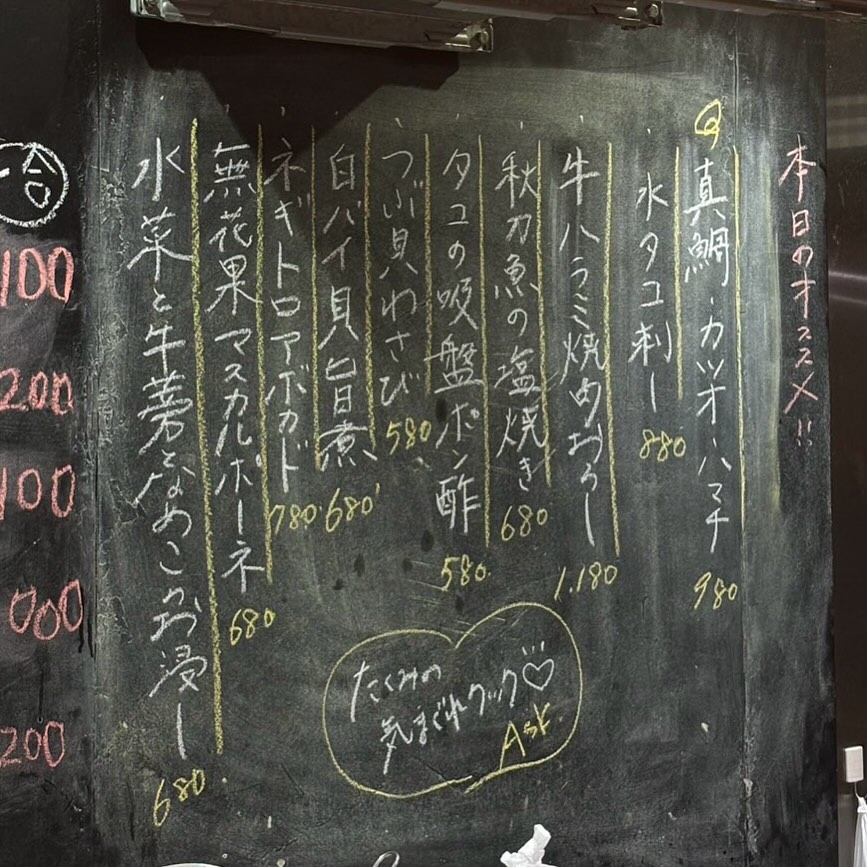 本日のオススメ!!
真鯛・カツオ・ハマチ 980
水タコ刺し 880
牛ハラミ焼肉おろし 1.180
秋刀魚の塩焼き 680
タコの吸盤ポン酢 580
つぶ貝わさび 580
白バイ貝旨煮 680
ネギトロアボカド 780
無花果マスカルポーネ 680
水菜と牛蒡となめこのお浸し 680
たくみの
気まぐれクック♡
Ask.
一合
100
200
100
000
200